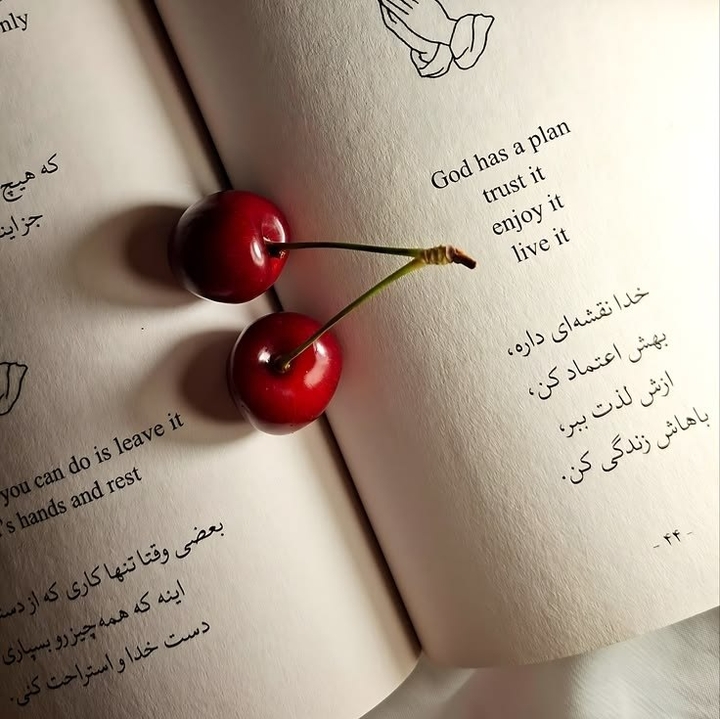 nly
که هیچ
جز این
you can do is leave it
's hands and rest
بعضی وقتا تنها کاری که از دست
اینه که همه‌چیز رو بسپاری
دست خدا و استراحت کنی.
God has a plan
trust it
enjoy it
live it
خدا نقشه‌ای داره،
بهش اعتماد کن،
ازش لذت ببر،
باهاش زندگی کن.
- ۴۴ -